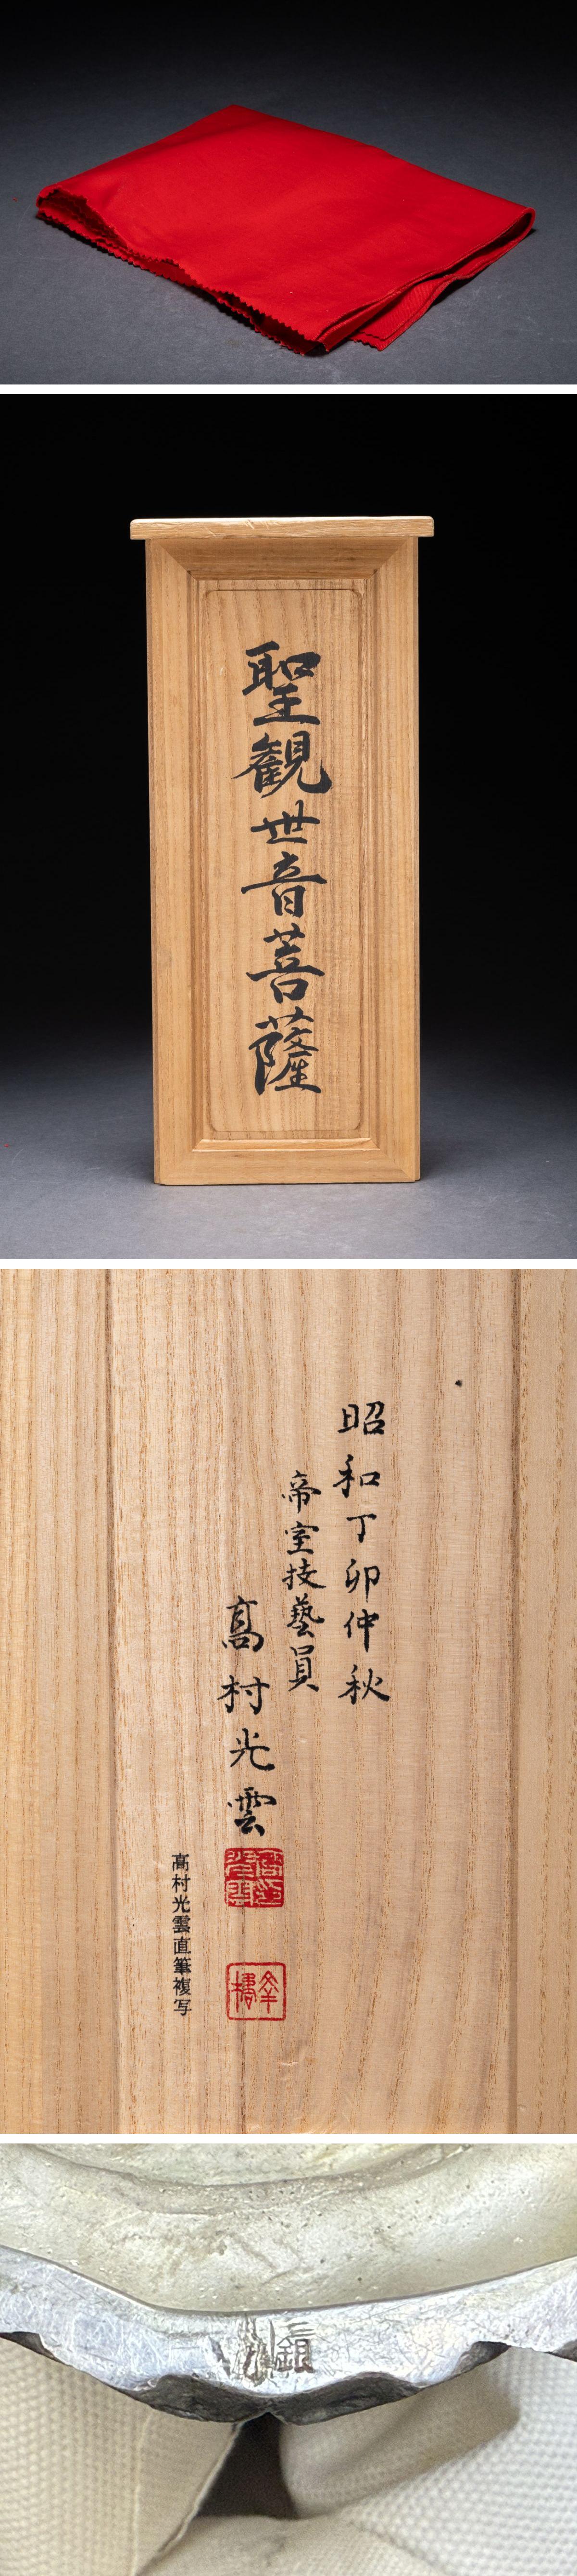 聖観世音菩薩
昭和丁卯仲秋
帝室技藝員
髙村光雲
高村光雲直筆複写
銀